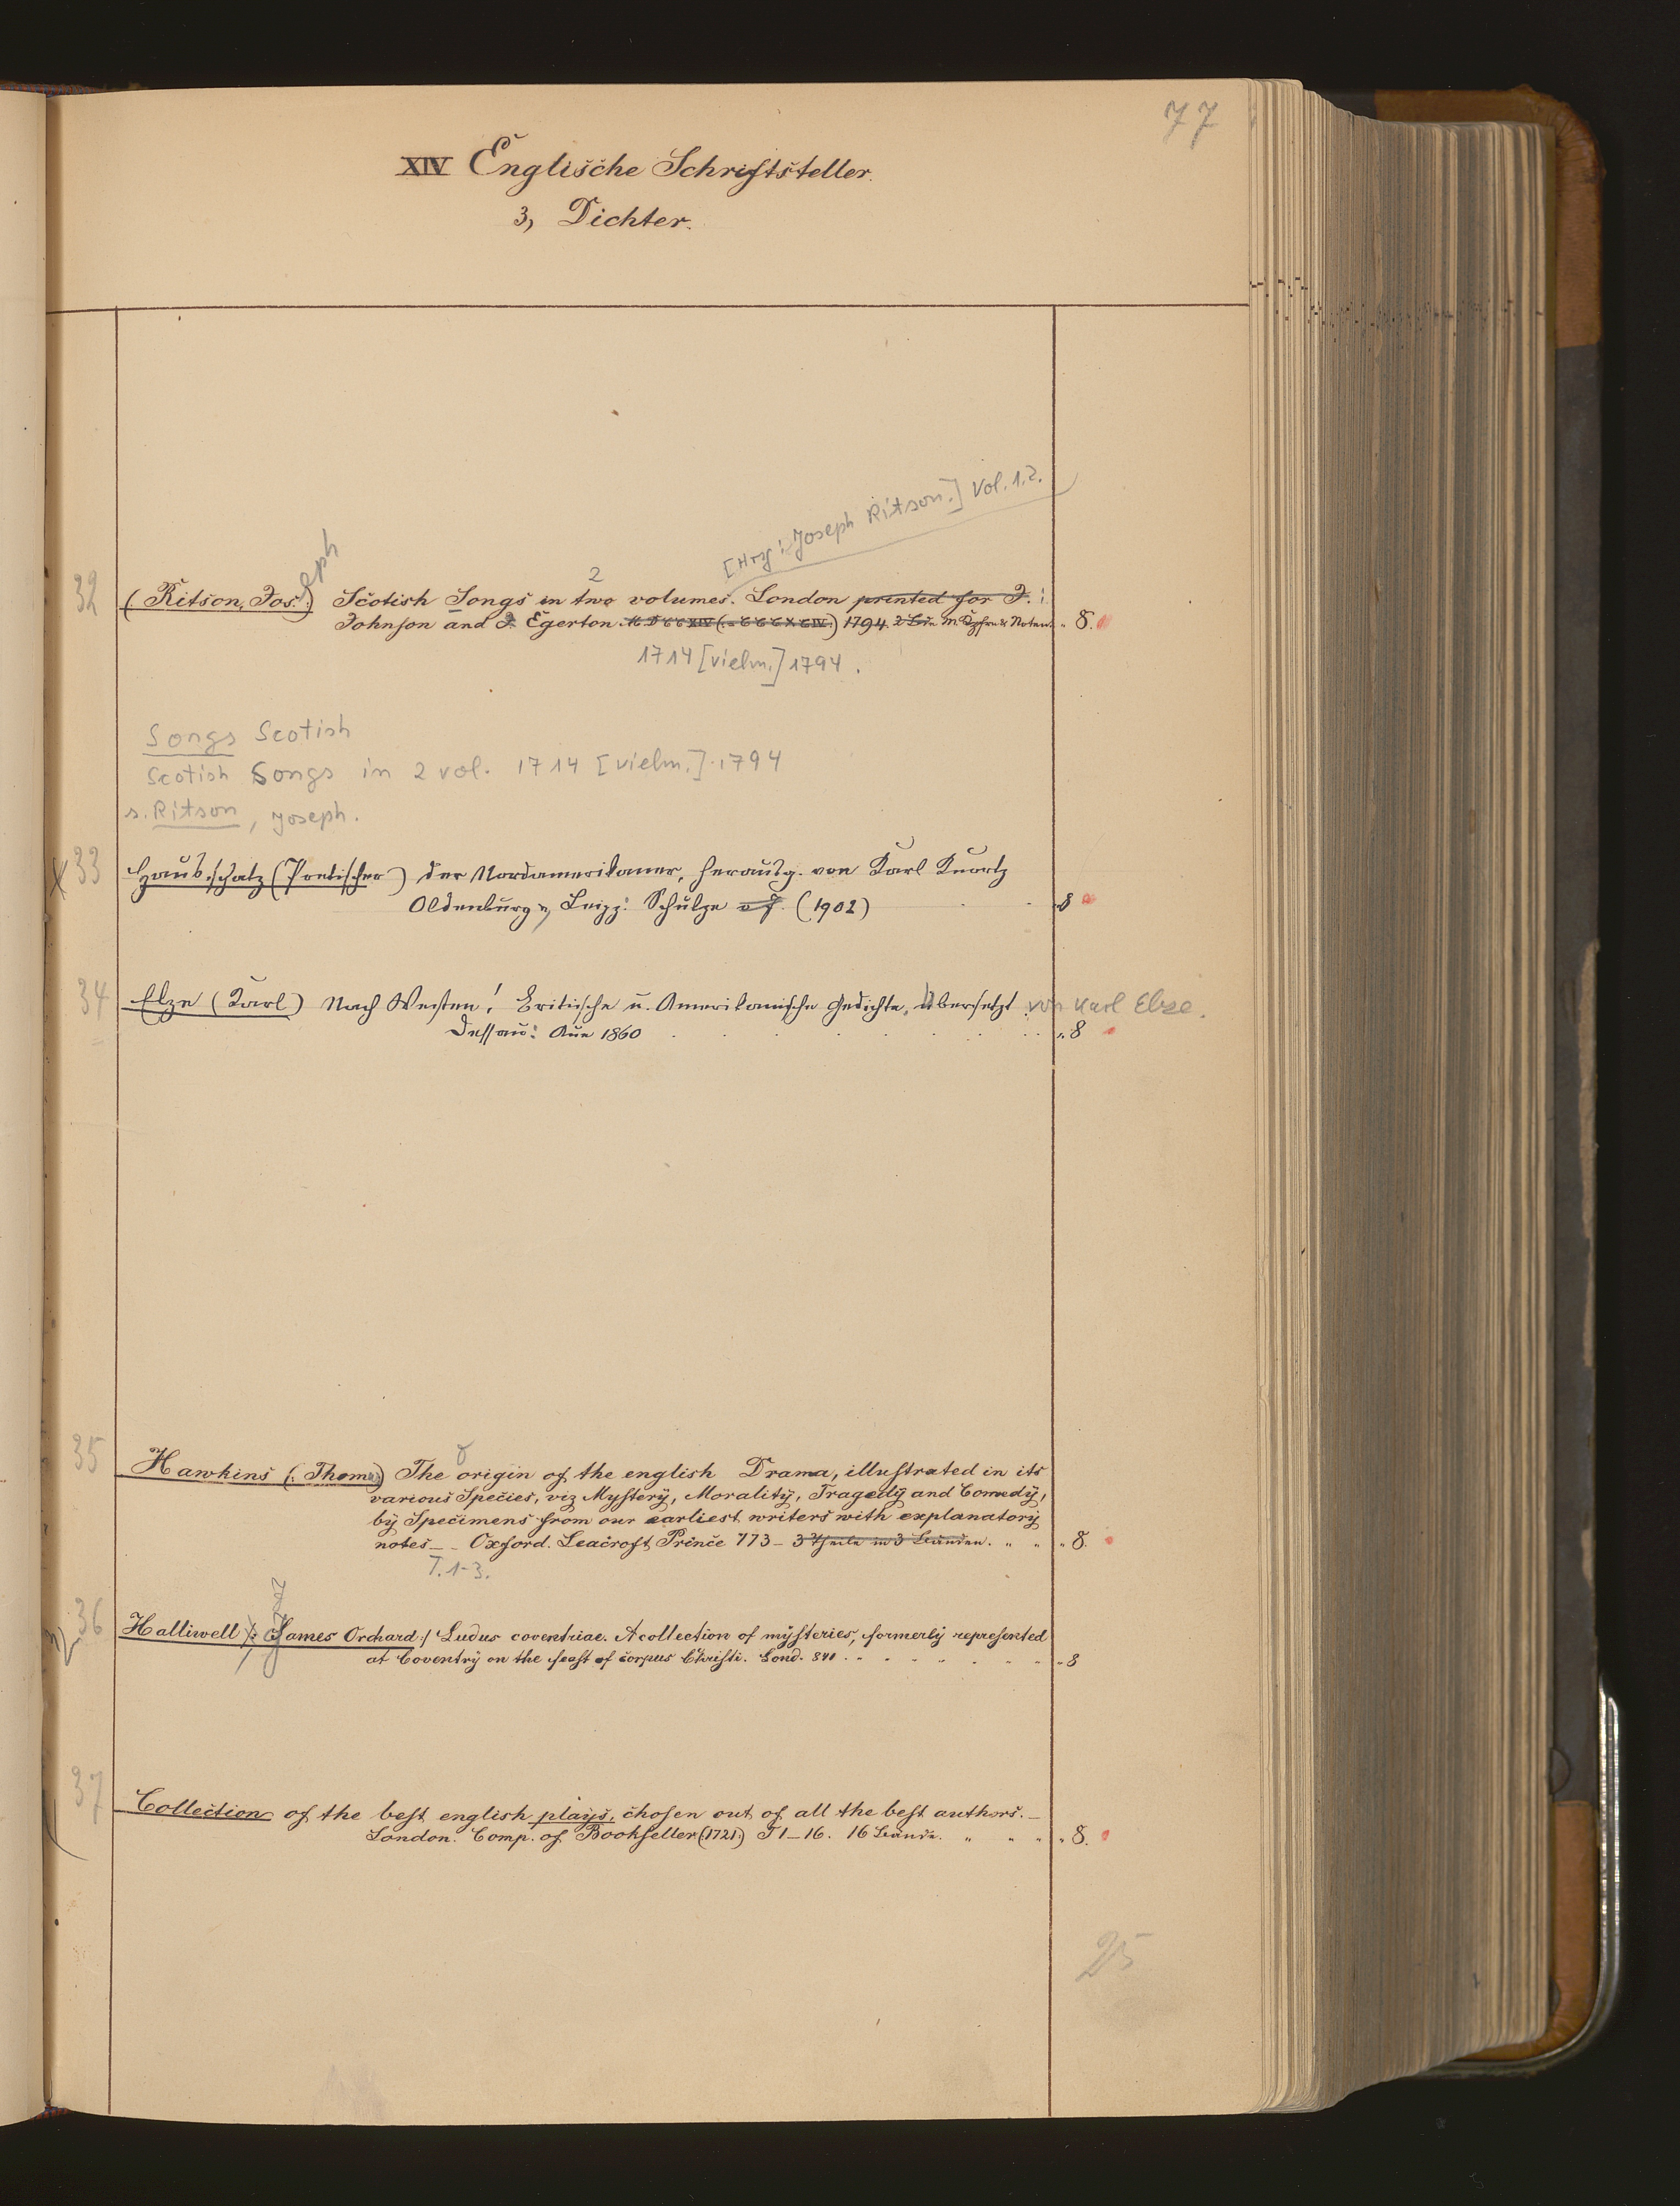 77
XIV Englische Schriftsteller.
3, Dichter.
[Hrsg: Joseph Ritson.] Vol. 1.2.
eph
2
32 (Ritson, Jos.) Scotish Songs in two volumes. London printed for J.
Johnson and J. Egerton. 1794. 2 Bde. M. Kpfrn & Noten. 8.
1714 [vielm.] 1794.
Songs Scotish
Scotish Songs in 2 vol. 1714 [vielm.] 1794
s. Ritson, Joseph.
33 Hausschatz (Poetischer) der Nordamerikaner, herausg. von Karl Knortz
Oldenburg u, Leipz: Schulze o J. (1902) 8
34 Elze (Karl) Nach Westen! Britische u. Amerikanische Gedichte, übersetzt von Karl Elze.
Dessau: Aue 1860 8
35 Hawkins (Thomas) The origin of the english Drama, illustrated in its
various Species, viz Mystery, Morality, Tragedy and Comedy,
by Specimens from our earliest writers with explanatory
notes — Oxford. Leacroft Prince 773 — 3 Theile in 3 Bänden. 8.
T. 1-3.
36 Halliwell James Orchard Ludus coventriae. A collection of mysteries, formerly represented
at Coventry on the feast of corpus Christi. Lond. 841. 8
37 Collection of the best english plays, chosen out of all the best authors. —
London. Comp. of Bookseller (1721.) T 1–16. 16 Bände. 8.
25